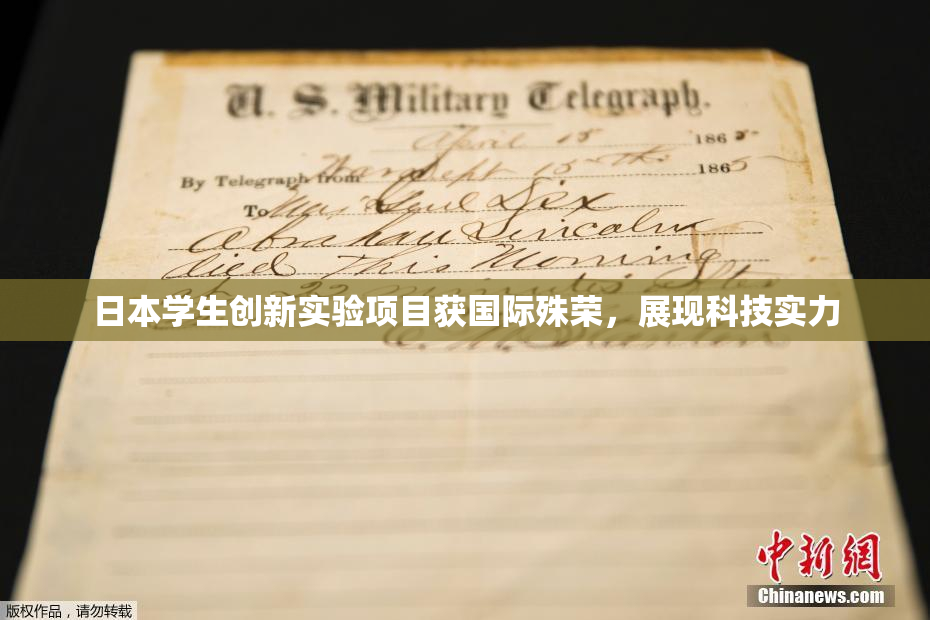 U. S. Military Telegraph.
April 15 1865
By Telegraph from War Dept 15th 1865
To Maj Genl Dix
Abraham Lincoln
died This Morning
at 22 minutes after
日本学生创新实验项目获国际殊荣，展现科技实力
E. M. Stanton
中新網
Chinanews.com
版权作品，请勿转载